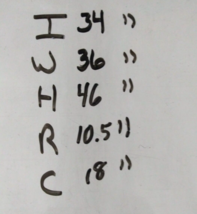 I 34 "
W 36 "
H 46 "
R 10.5"
C 18 "